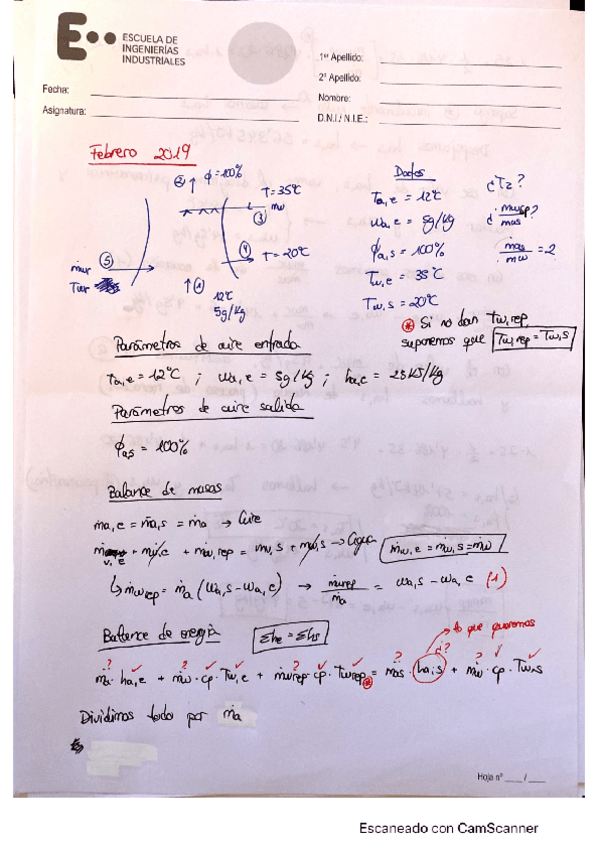 E••
ESCUELA DE
INGENIERÍAS
INDUSTRIALES
1er Apellido:
2º Apellido:
Fecha:
Nombre:
Asignatura:
D.N.I./ N.I.E.:
Febrero 2019
② ↑ ϕ=100%
T=35℃
mw
③
④
T=20℃
⑤
↑①
12℃
5g/kg
Datos
Ta,e = 12℃
wa,e = 5g/kg
ϕa,s = 100%
Tw,e = 35℃
Tw,s = 20℃
¿T2?
* Si no dan Tw,rep,
suponemos que Tw,rep = Tw,s
Parámetros de aire entrada
Ta,e = 12℃ ; wa,e = 5g/kg ; ha,e = 25KJ/kg
Parámetros de aire salida
ϕa,s = 100%
Balance de masas
ma,e = ṁa,s = ṁa → Aire
→ Agua ṁw,e = ṁw,s = ṁw
↳ ṁwrep = ṁa (wa,s - wa,e) → ṁwrep/ṁa = wa,s - wa,e (1)
Balance de energía Σhe = Σhs
lo que queremos
ṁa · ha,e + ṁw · cp · Tw,e + ṁwrep · cp · Twrep* = ṁas · ha,s + ṁw · cp · Tw,s
Dividimos todo por ṁa
Hoja nº ___ / ___
Escaneado con CamScanner